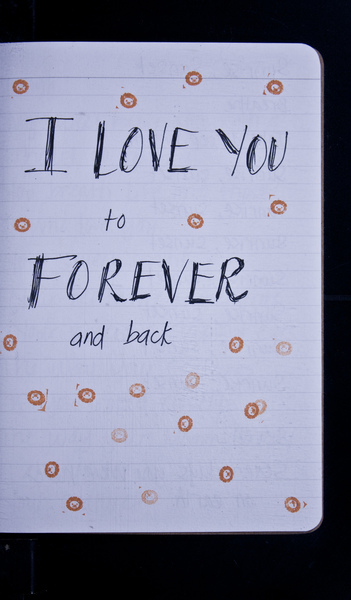 I LOVE YOU
to
FOREVER
and back